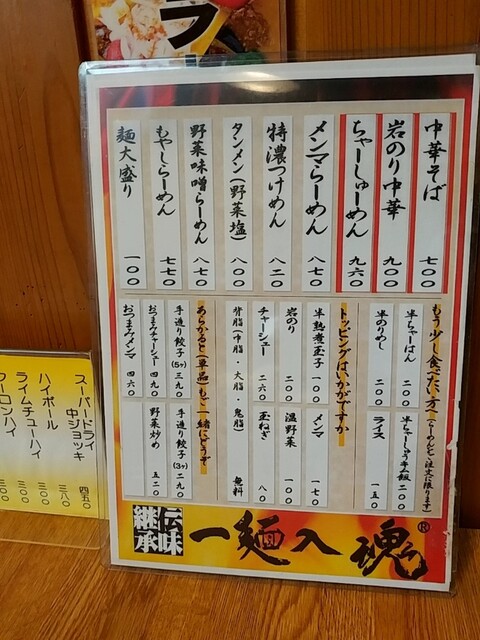 ラ
中華そば 七〇〇
岩のり中華 九〇〇
ちゃーしゅーめん 九六〇
メンマらーめん 八七〇
特濃つけめん 八二〇
タンメン(野菜塩) 八〇〇
野菜味噌らーめん 八七〇
もやしらーめん 七七〇
麺大盛り 一〇〇
もう少し食べたい方へ(らーめんをご注文に限ります)
半ちゃーはん 二〇〇
半ちゃーしゅー丼 二〇〇
半のりめし 二〇〇
ライス 一五〇
トッピングはいかがですか
半熟煮玉子 一〇〇
メンマ 一七〇
岩のり 二〇〇
温野菜 一〇〇
チャーシュー 二六〇
玉ねぎ 八〇
背脂(中脂・大脂・鬼脂) 無料
あらかると(単品)もご一緒にどうぞ
手造り餃子(5ヶ) 三九〇
手造り餃子(3ヶ) 二九〇
おつまみチャーシュー 四九〇
野菜炒め 五二〇
おつまみメンマ 四六〇
伝味継承
一麺入魂®
スーパードライ
中ジョッキ 四五〇
ハイボール 三八〇
ライムチューハイ 三〇〇
ウーロンハイ 三〇〇